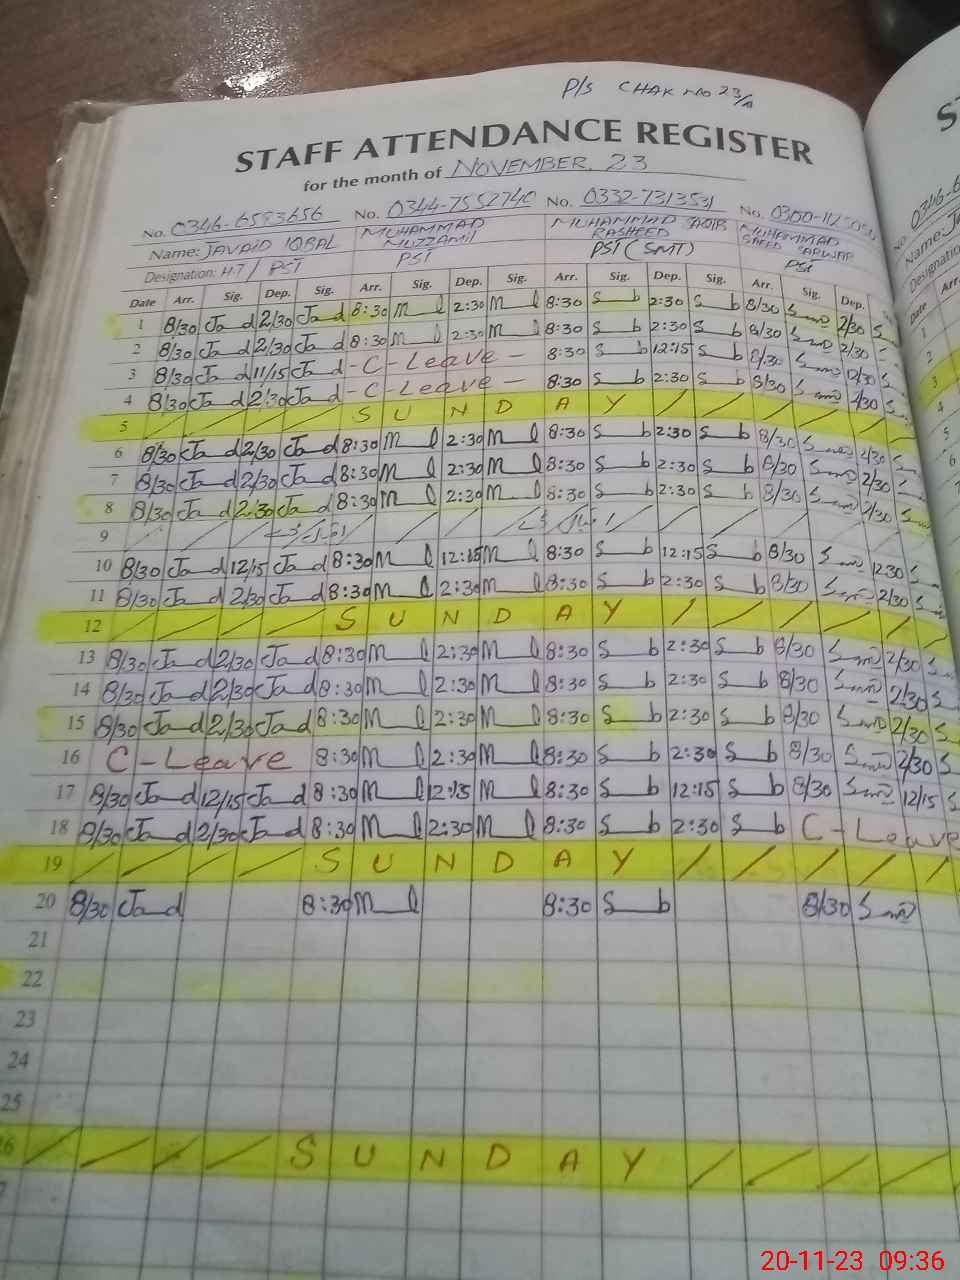 P/S CHAK no 23/A
STAFF ATTENDANCE REGISTER
for the month of NOVEMBER. 23
No. 0346-6583656 No. 0344-7552740 No. 0332-7313531 No.
Name: JAVAID IQBAL MUHAMMAD MUZZAMIL MUHAMMAD RASHEED MUHAMMAD SAEED SARWAR
Designation: H.T / PST PST PST (SMT) PST
Date Arr. Sig. Dep. Sig. Arr. Sig. Dep. Sig. Arr. Sig. Dep. Sig. Arr. Sig. Dep.
1 8/30 Ja d 2/30 Ja d 8:30 M l 2:30 M l 8:30 S b 2:30 S b 8/30 2/30
2 8/30 Ja d 2/30 Ja d 8:30 M l 2:30 M l 8:30 S b 2:30 S b 8/30 2/30
3 8/30 Ja d 11/15 Ja d - C - Leave - 8:30 S b 12:15 S b 8/30 12/30
4 8/30 Ja d 2/30 Ja d - C - Leave - 8:30 S b 2:30 S b 8/30 2/30
5 / / / / S U N D A Y / / / / / /
6 8/30 Ja d 2/30 Ja d 8:30 M l 2:30 M l 8:30 S b 2:30 S b 8/30 2/30
7 8/30 Ja d 2/30 Ja d 8:30 M l 2:30 M l 8:30 S b 2:30 S b 8/30 2/30
8 8/30 Ja d 2:30 Ja d 8:30 M l 2:30 M l 8:30 S b 2:30 S b 8/30 2/30
9
10 8/30 Ja d 12/15 Ja d 8:30 M l 12:15 M l 8:30 S b 12:15 S b 8/30 1230
11 8/30 Ja d 2/30 Ja d 8:30 M l 2:30 M l 8:30 S b 2:30 S b 8/30 2/30
12 / / / / S U N D A Y / / / / / /
13 8/30 Ja d 2/30 Ja d 8:30 M l 2:30 M l 8:30 S b 2:30 S b 8/30 2/30
14 8/30 Ja d 2/30 Ja d 8:30 M l 2:30 M l 8:30 S b 2:30 S b 8/30 2/30
15 8/30 Ja d 2/30 Ja d 8:30 M l 2:30 M l 8:30 S b 2:30 S b 8/30 2/30
16 C - Leave 8:30 M l 2:30 M l 8:30 S b 2:30 S b 8/30 2/30
17 8/30 Ja d 12/15 Ja d 8:30 M l 12:15 M l 8:30 S b 12:15 S b 8/30 12/15
18 8/30 Ja d 2/30 Ja d 8:30 M l 2:30 M l 8:30 S b 2:30 S b C - Leave
19 / / / / S U N D A Y / / / / / /
20 8/30 Ja d 8:30 M l 8:30 S b 8/30
21
22
23
24
25
26 / / / / S U N D A Y / / / / /
20-11-23 09:36